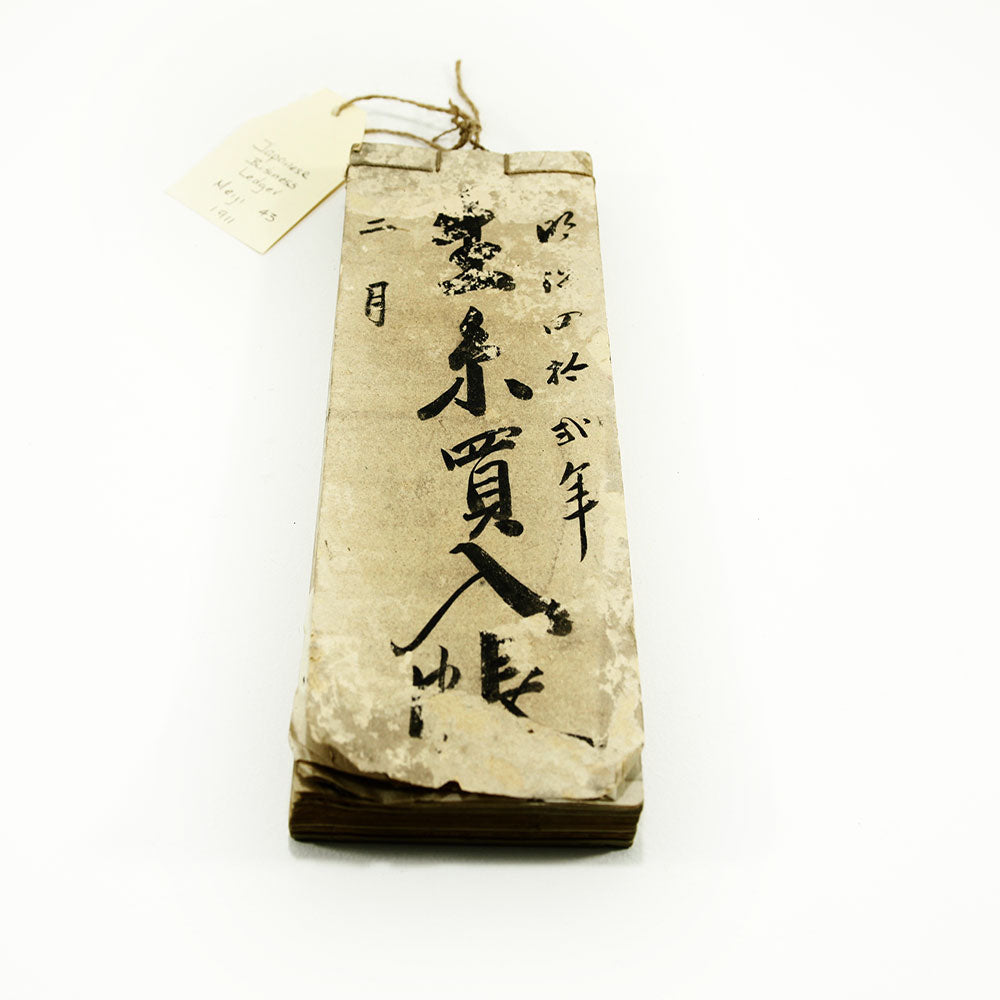 Japanese
Business
Ledger
Meiji 43
1911
明治四拾弐年
糸買入帳
二月